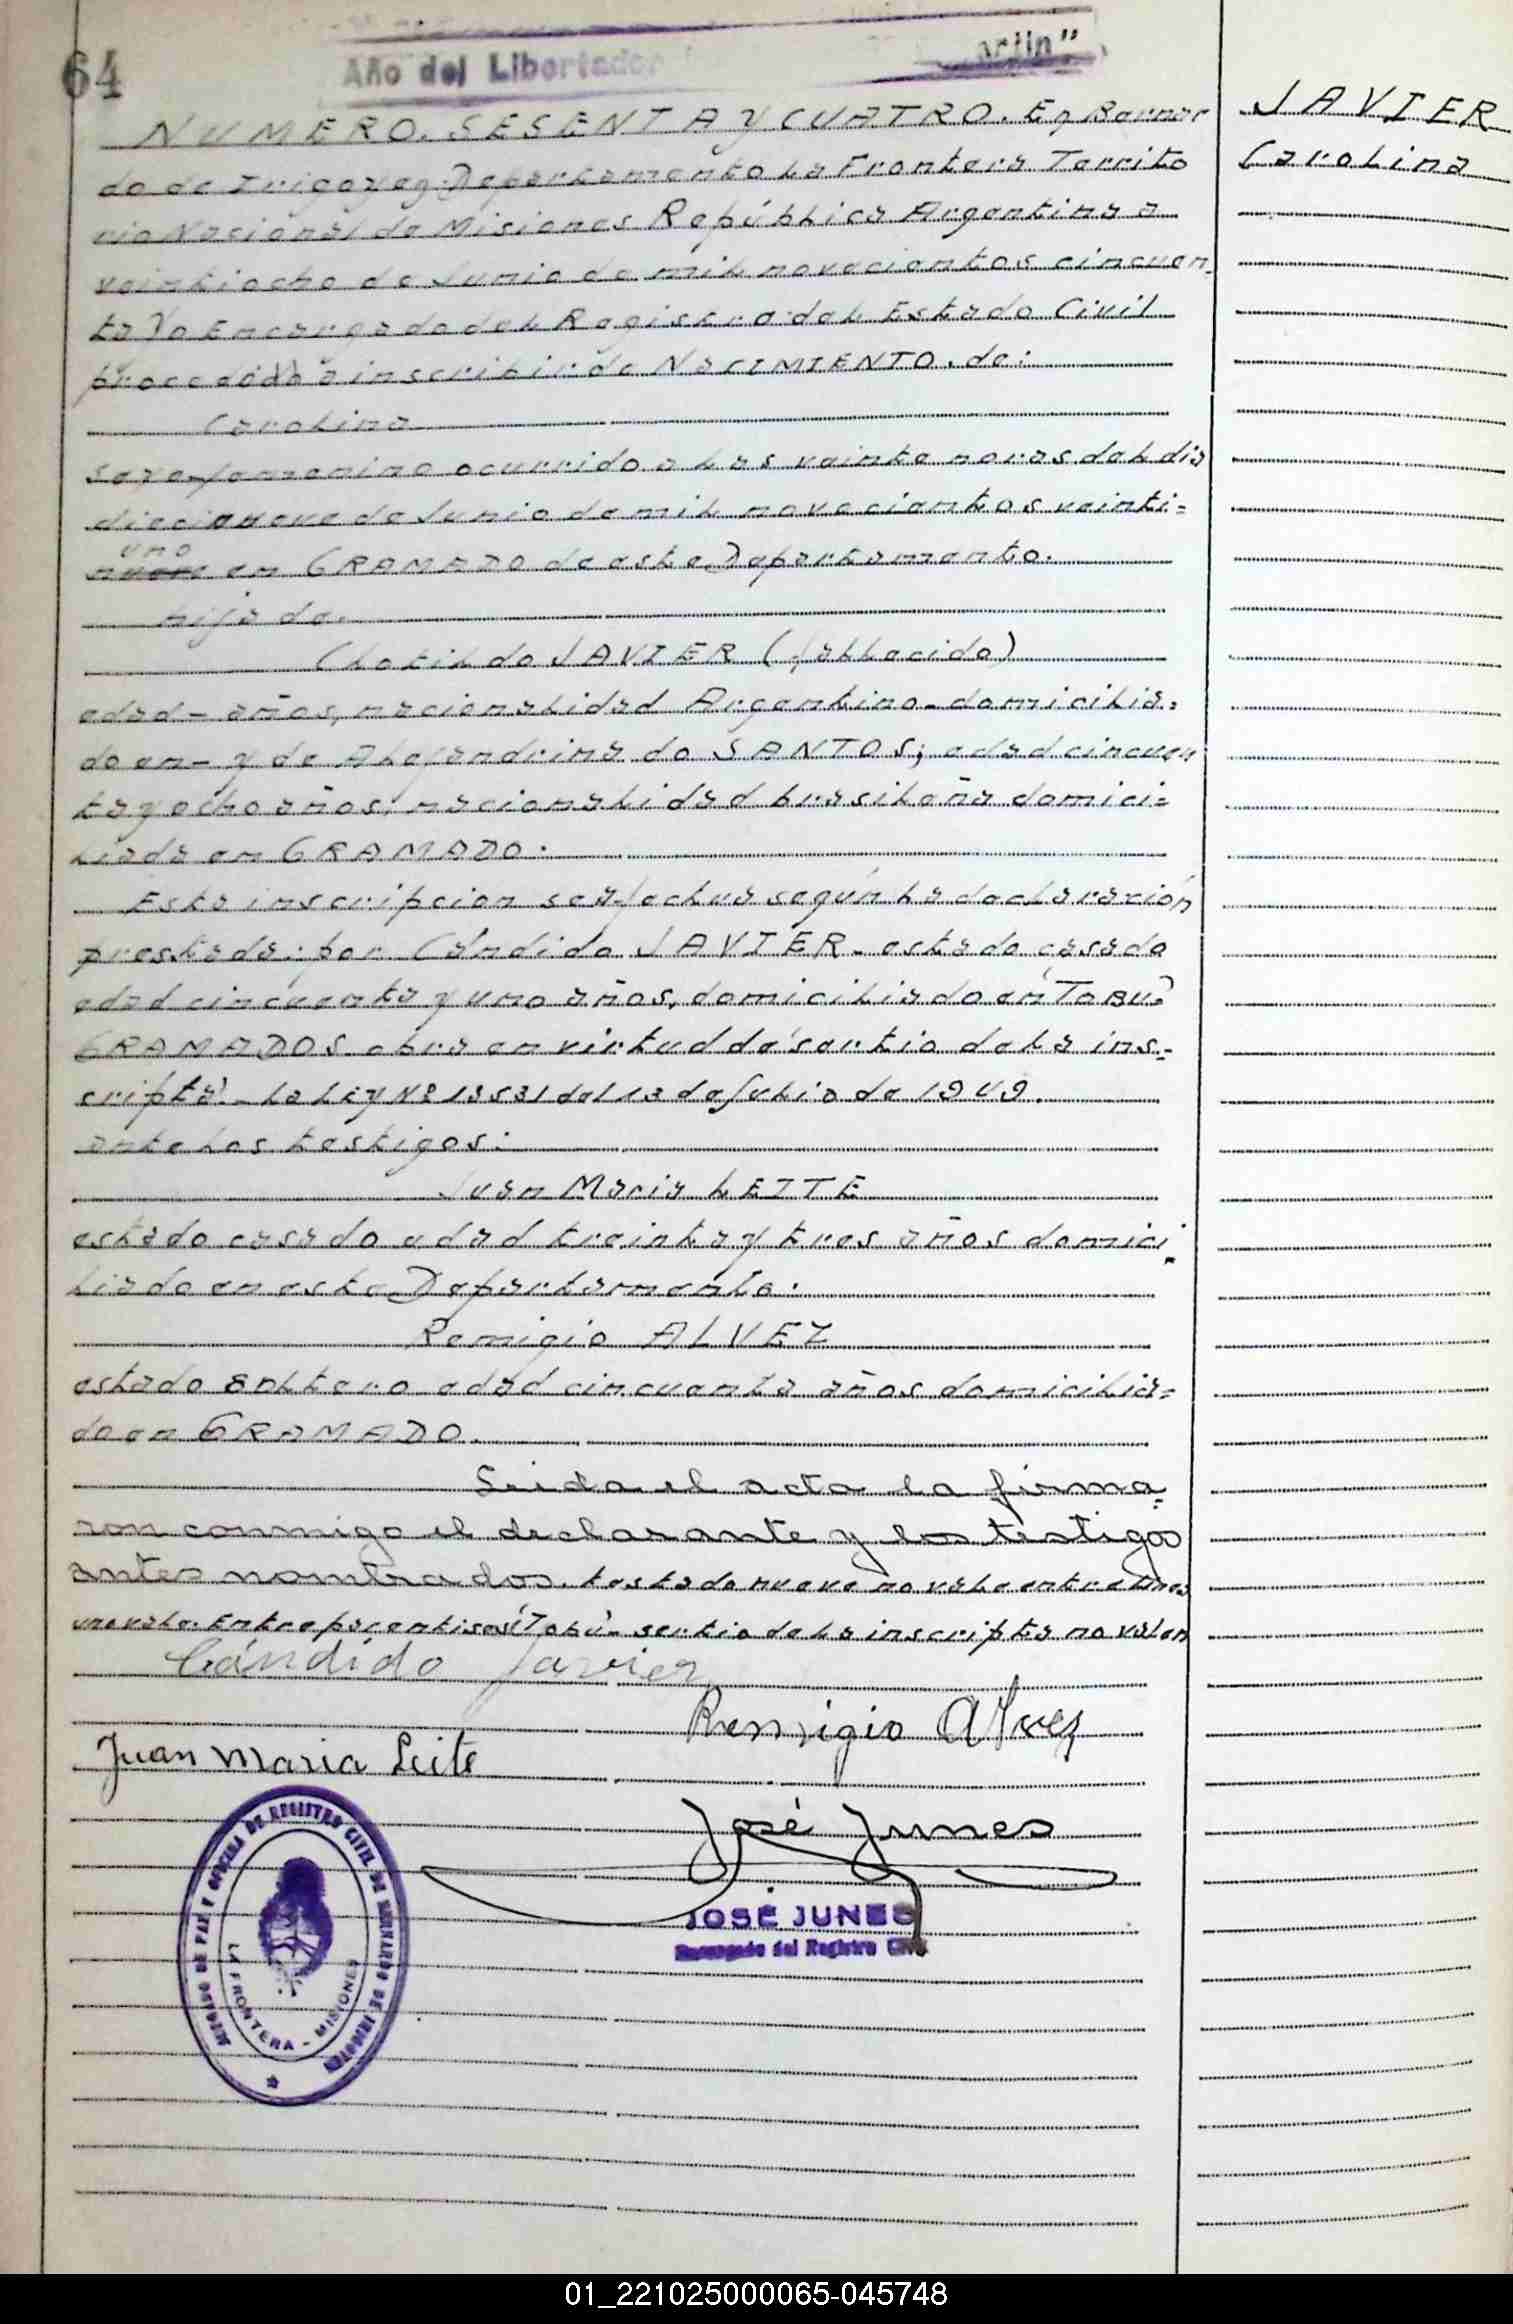 64
Año del Libertador artin"
NUMERO. SESENTA Y CUATRO. En Bernar
do de Irigoyen Departamento La Frontera Territo
rio Nacional de Misiones República Argentina a
veintiocho de Junio de mil novecientos cincuen-
ta Yo Encargado del Registro del Estado Civil
procedo a inscribir de NACIMIENTO. de:
Carolina
sexo femenino ocurrido a las veinte horas del dia
diecinueve de Junio de mil novecientos veinti=
uno
nueve en GRAMADO de este Departamento.
hija de.
Clotildo JAVIER (fallecido)
edad - años, nacionalidad Argentino - domicilia=
do en - y de Alejandrina do SANTOS; edad cincuen
ta y ocho años; nacionalidad brasileña domici=
liada en GRAMADO.
Esta inscripcion se efectua según la declaración
prestada: por Cándido JAVIER - estado casado
edad cincuenta y uno años, domiciliado en TABU?
GRAMADOS obra en virtud de sertio de la ins=
cripta - La Ley Nº 13531 del 13 de Julio de 1949.
ante los testigos:
Juan Maria LEITE
estado casado edad treinta y tres años domici
liado en este Departamento.
Remigio ALVEZ
estado soltero edad cincuenta años domicilia=
do en GRAMADO.
Leida el acta la firma=
ron conmigo el declarante y los testigos
antes nombrados. testado nueve no vale entre lineas
uno vale. Entre parentisis Tabú - sertio de la inscripta no valen
Cándido Javier
Remigio Alvez
Juan Maria Leite
José Junes
JOSÉ JUNES
Encargado del Registro Civil
JUZGADO DE PAZ Y OFICINA DE REGISTRO CIVIL DE BERNARDO DE IRIGOYEN
LA FRONTERA - MISIONES
JAVIER
Carolina
01_221025000065-045748